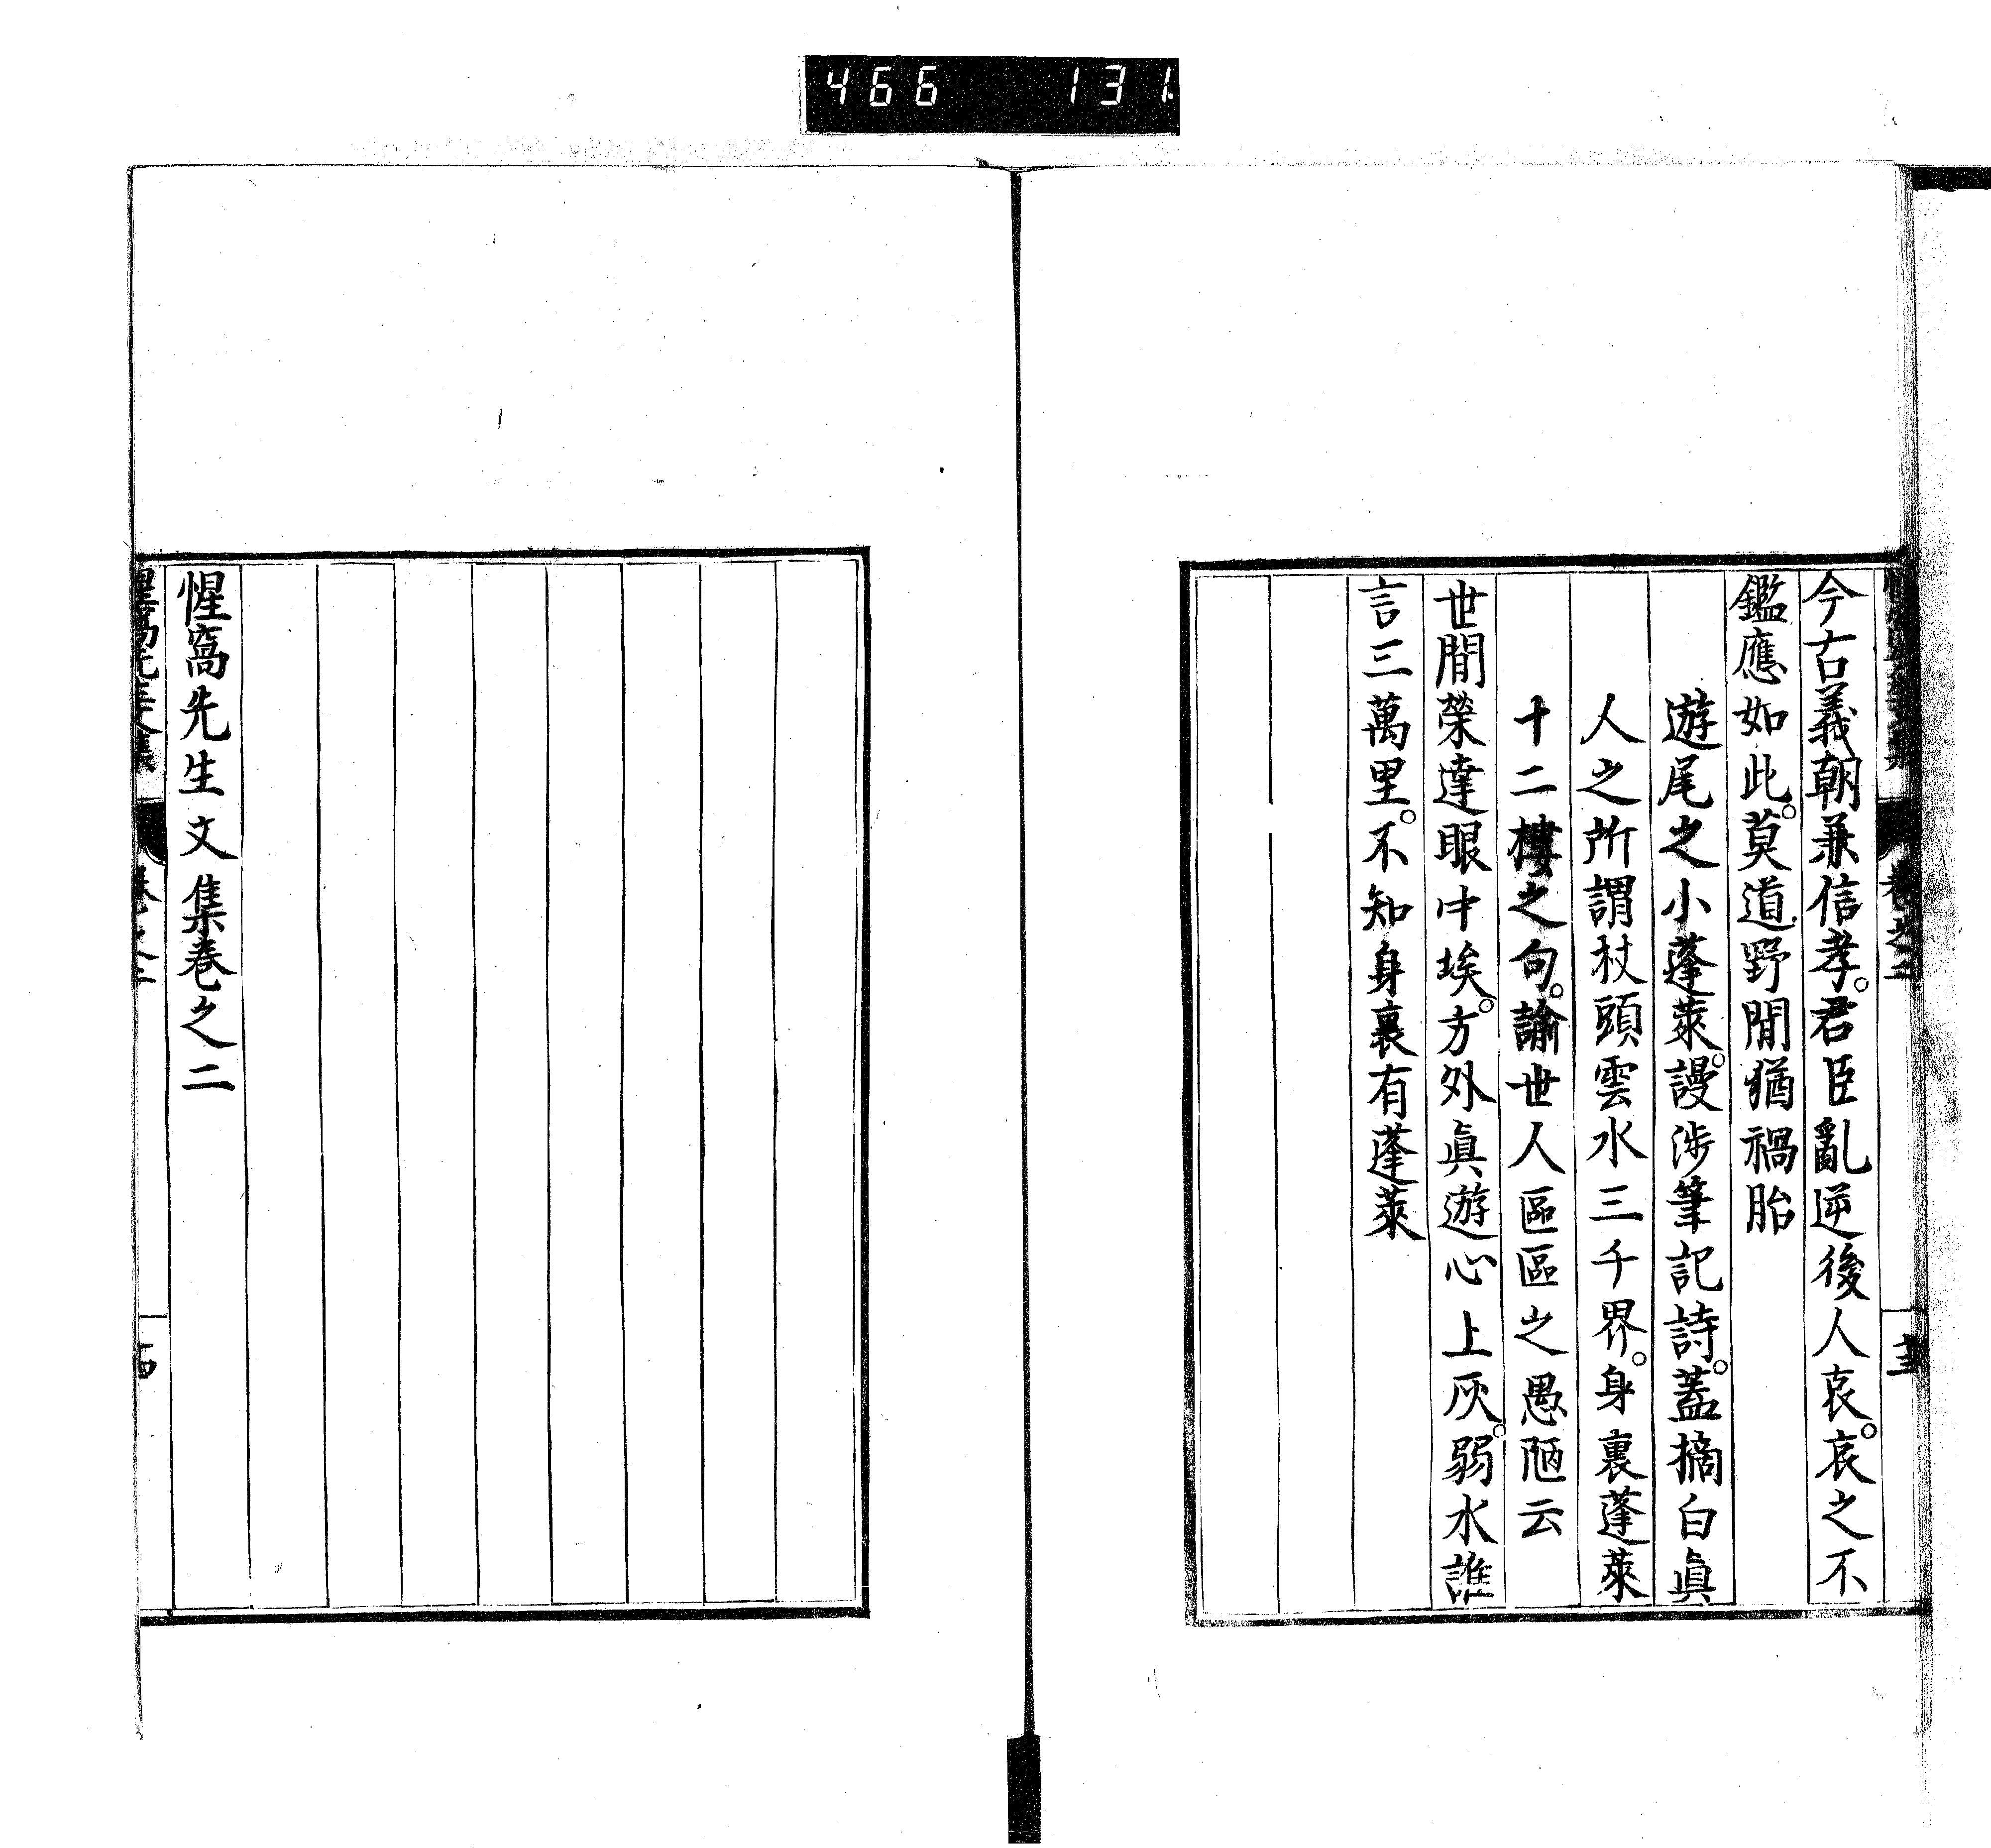 466 131
今古義朝兼信孝。君臣亂逆後人哀。哀之不
鑑應如此。莫道野間猶禍胎
遊尾之小蓬萊。謾涉筆記詩。蓋摘白眞
人之所謂杖頭雲水三千界。身裏蓬萊
十二樓之句。諭世人區區之愚陋云
世間榮達眼中埃。方外眞遊心上灰。弱水誰
言三萬里。不知身裏有蓬萊
惺窩先生文集卷之二